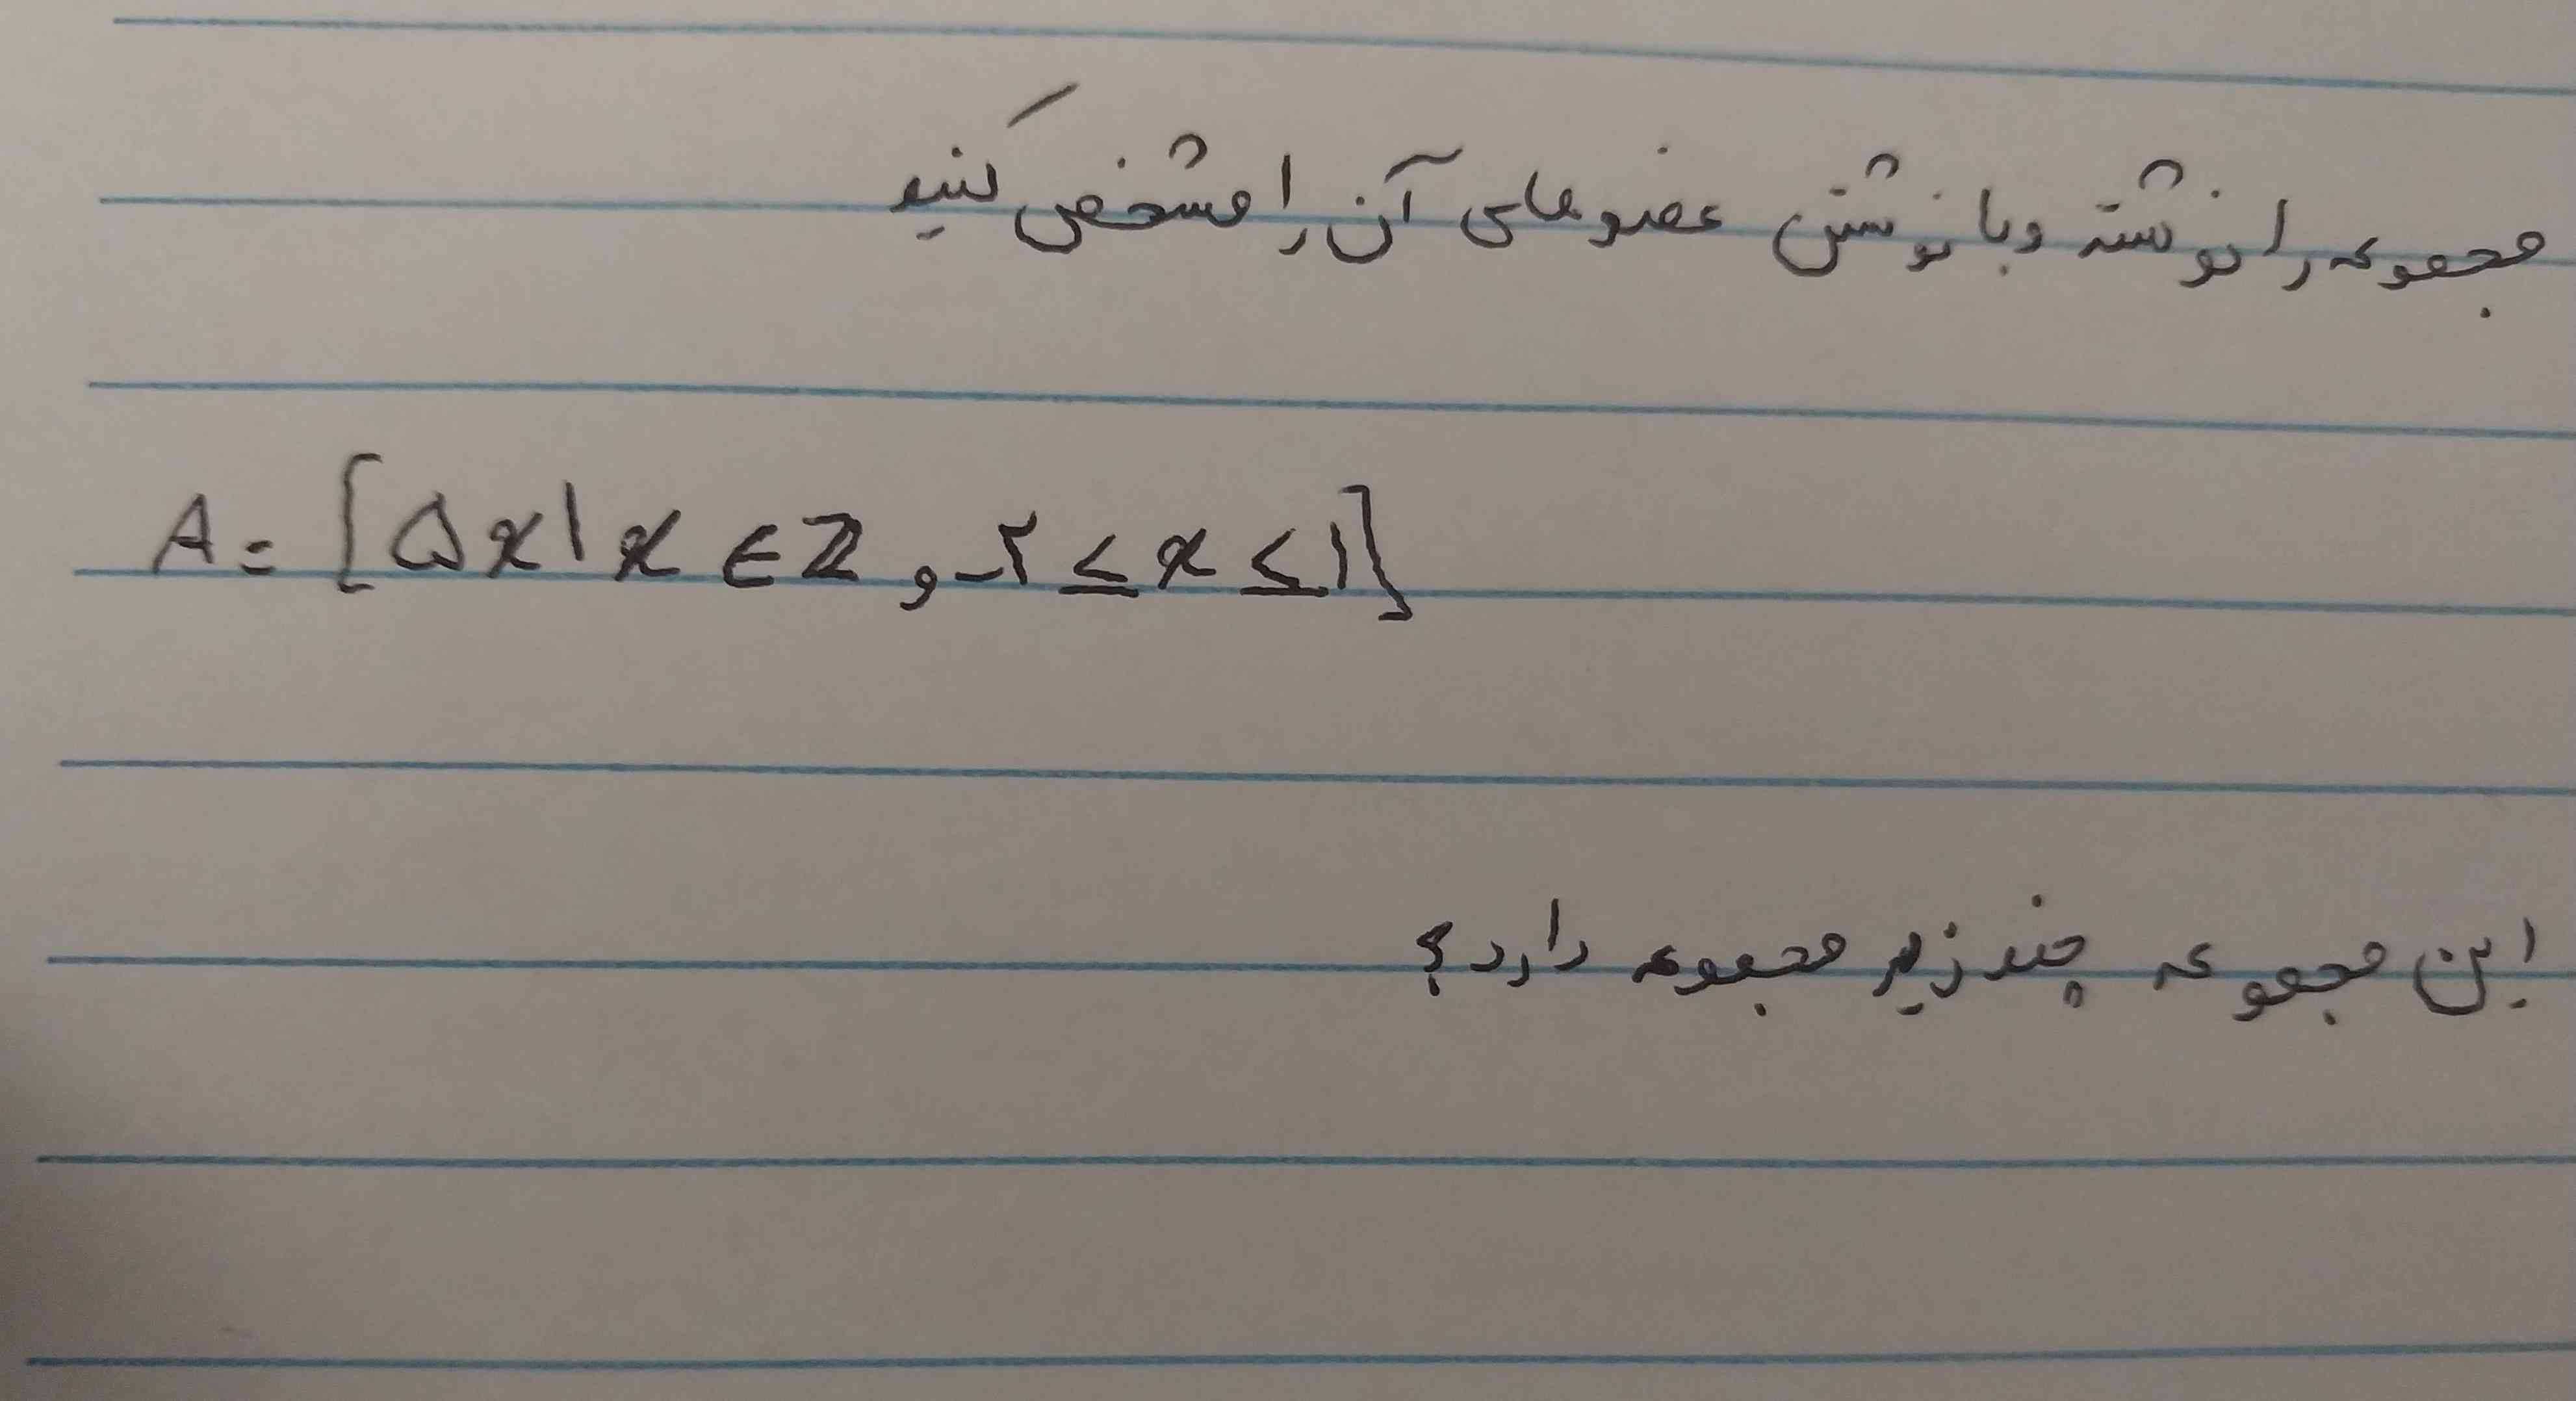 مجموعه را نوشته و با نوشتن عضوهای آن را مشخص کنید
A = [۵x | x ∈ Z , -۲ ≤ x ≤ ۱]
این مجموعه چند زیر مجموعه دارد؟